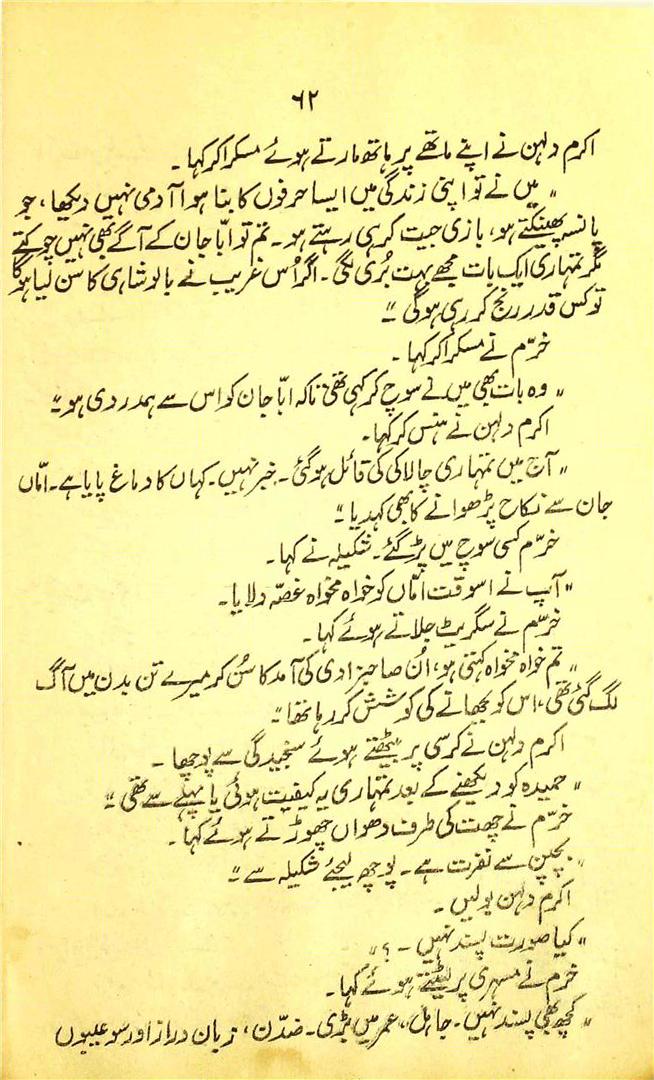 ۶۲
اکرم دلہن نے اپنے ماتھے پر ہاتھ مارتے ہوئے مسکرا کر کہا۔
"میں نے تو اپنی زندگی میں ایسا حرفوں کا بنا ہوا آدمی نہیں دیکھا، جو
پانسہ پھینکتے ہو، بازی جیت کر ہی رہتے ہو۔ تم تو ابّا جان کے آگے بھی نہیں چوکتے
مگر تمہاری ایک بات مجھے بہت بُری لگی۔ اگر اُس غریب نے بالوشاہی کا سن لیا ہوگا
تو کس قدر رنج کر رہی ہوگی"
خرّم نے مسکرا کر کہا۔
"وہ بات بھی میں نے سوچ کر کہی تھی تاکہ ابّا جان کو اس سے ہمدردی ہو"
اکرم دلہن نے ہنس کر کہا۔
"آج میں تمہاری چالاکی کی قائل ہوگئی۔ خبر نہیں۔ کہاں کا دماغ پایا ہے۔ امّاں
جان سے نکاح پڑھوانے کا بھی کہدیا"
خرّم کسی سوچ میں پڑ گئے۔ شکیلہ نے کہا۔
"آپ نے اسوقت امّاں کو خواہ مخواہ غصّہ دلایا۔
خرّم نے سگریٹ جلاتے ہوئے کہا۔
"تم خواہ مخواہ کہتی ہو، اُن صاحبزادی کی آمد کا سُن کر میرے تن بدن میں آگ
لگ گئی تھی، اس کو بجھانے کی کوشش کر رہا تھا"
اکرم دلہن نے کرسی پر بیٹھتے ہوئے سنجیدگی سے پوچھا۔
"حمیدہ کو دیکھنے کے بعد تمہاری یہ کیفیت ہوئی یا پہلے سے تھی"
خرّم نے چھت کی طرف دھواں چھوڑتے ہوئے کہا۔
"بچپن سے نفرت ہے۔ پوچھ لیجئے شکیلہ سے"
اکرم دلہن بولیں۔
"کیا صورت پسند نہیں۔؟"
خرم نے مسہری پر لیٹتے ہوئے کہا۔
"کچھ بھی پسند نہیں۔ جاہل، عمر میں بڑی۔ ضدّن، زبان دراز اور سو عیبوں